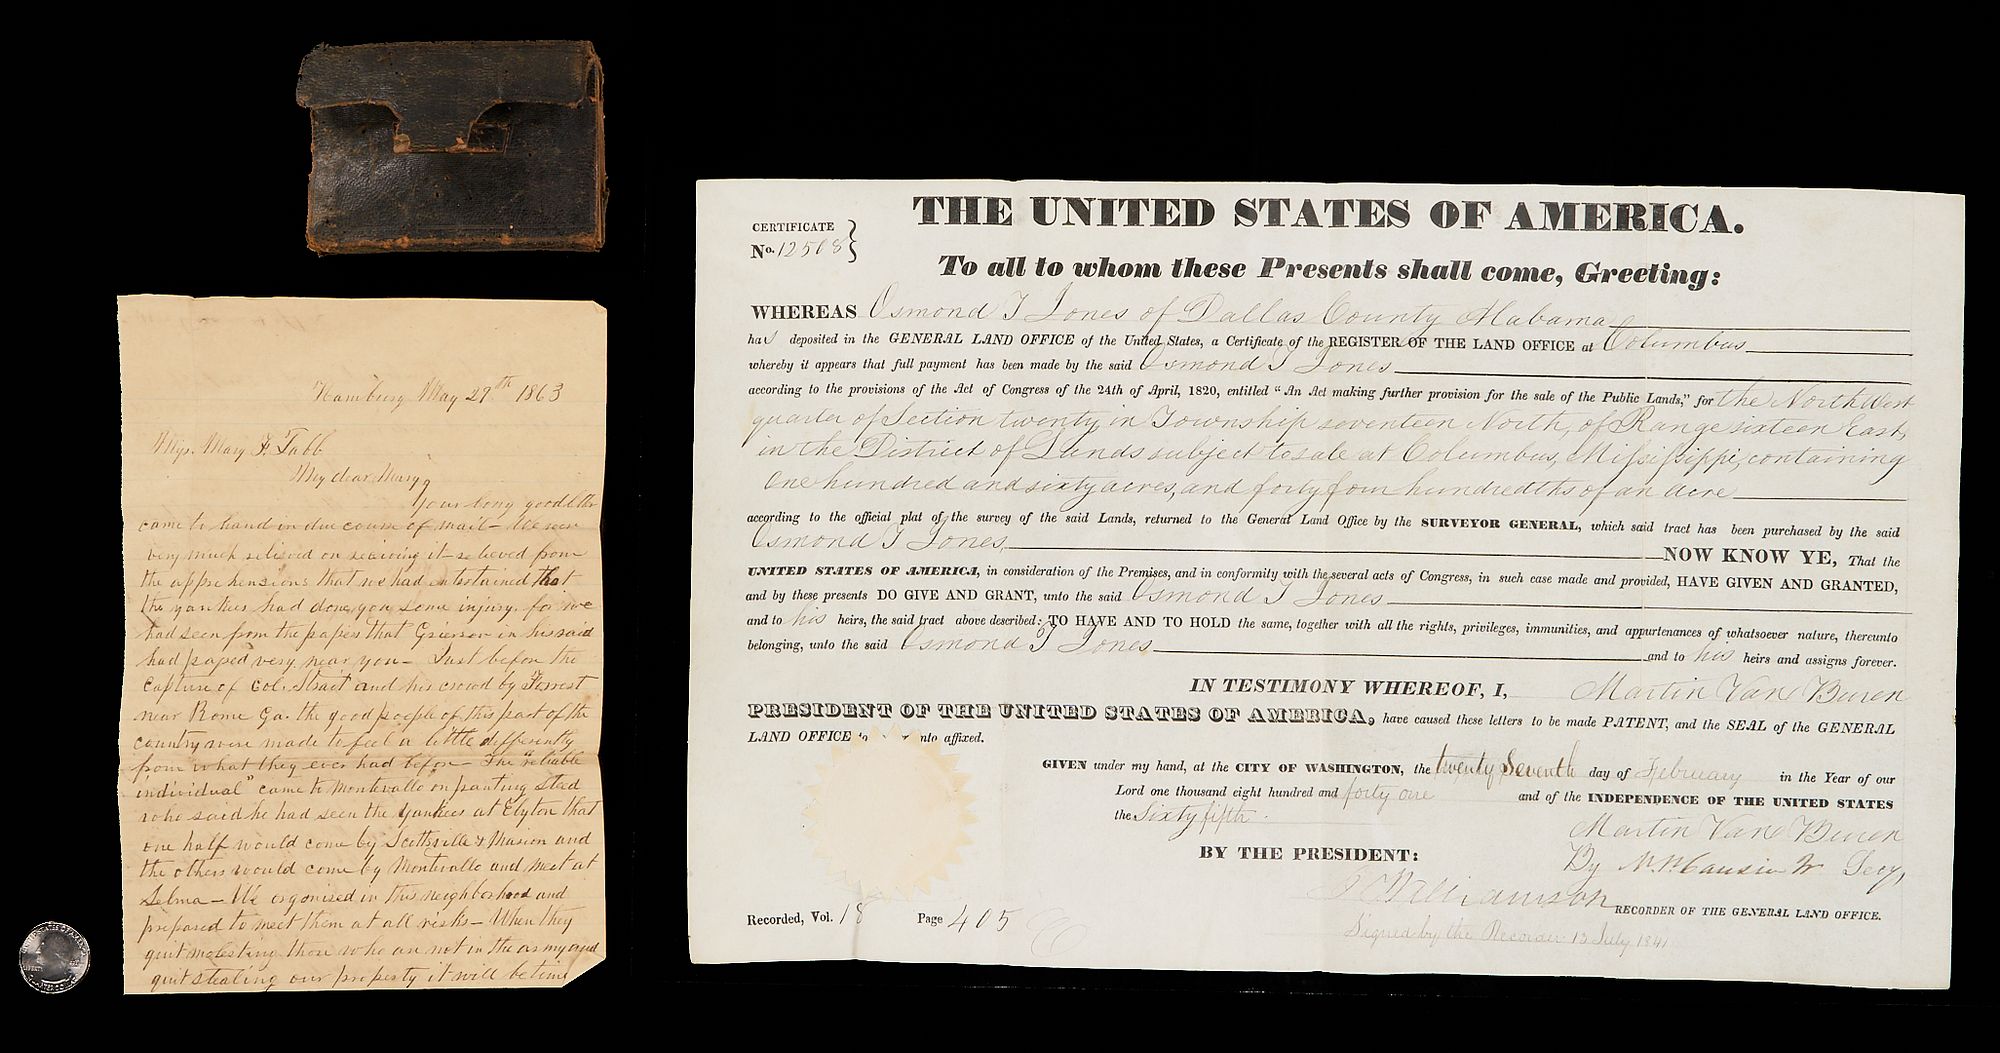 Hamburg May 27th 1863
Mrs. Mary F. Tabb
My dear Mary
Your long good letter
came to hand in due course of mail - We were
very much relieved on receiving it - relieved from
the apprehensions that we had entertained that
the yankees had done you some injury, for we
had seen from the papers that Grierson in his raid
had passed very near you - Just before the
capture of Col. Strait and his crowd by Forrest
near Rome Ga. the good people of this part of the
country were made to feel a little differently
from what they ever had before - The "reliable
individual" came to Montevallo on panting steed
who said he had seen the Yankees at Elyton that
one half would come by Scottsville & Marion and
the others would come by Montevallo and meet at
Selma - We organised in this neighborhood and
prepared to meet them at all risks - When they
quit molesting those who are not in the army and
quit stealing our property it will be time
CERTIFICATE
No. 12508
THE UNITED STATES OF AMERICA.
To all to whom these Presents shall come, Greeting:
WHEREAS Osmond T Jones of Dallas County Alabama
has deposited in the GENERAL LAND OFFICE of the United States, a Certificate of the REGISTER OF THE LAND OFFICE at Columbus
whereby it appears that full payment has been made by the said Osmond T Jones
according to the provisions of the Act of Congress of the 24th of April, 1820, entitled "An Act making further provision for the sale of the Public Lands," for the North West
quarter of Section twenty, in Township seventeen North, of Range sixteen East,
in the District of Lands subject to sale at Columbus, Mississippi, containing
one hundred and sixty acres, and forty four hundredths of an acre
according to the official plat of the survey of the said Lands, returned to the General Land Office by the SURVEYOR GENERAL, which said tract has been purchased by the said
Osmond T Jones, NOW KNOW YE, That the
UNITED STATES OF AMERICA, in consideration of the Premises, and in conformity with the several acts of Congress, in such case made and provided, HAVE GIVEN AND GRANTED,
and by these presents DO GIVE AND GRANT, unto the said Osmond T Jones
and to his heirs, the said tract above described: TO HAVE AND TO HOLD the same, together with all the rights, privileges, immunities, and appurtenances of whatsoever nature, thereunto
belonging, unto the said Osmond T Jones and to his heirs and assigns forever.
IN TESTIMONY WHEREOF, I, Martin Van Buren
PRESIDENT OF THE UNITED STATES OF AMERICA, have caused these letters to be made PATENT, and the SEAL of the GENERAL
LAND OFFICE to affixed.
GIVEN under my hand, at the CITY OF WASHINGTON, the twenty Seventh day of February in the Year of our
Lord one thousand eight hundred and forty one and of the INDEPENDENCE OF THE UNITED STATES
the Sixty fifth
Martin Van Buren
BY THE PRESIDENT:
By Secy,
Williamson RECORDER OF THE GENERAL LAND OFFICE.
Recorded, Vol. 18 Page 405
Signed by the Recorder 13 July 1841